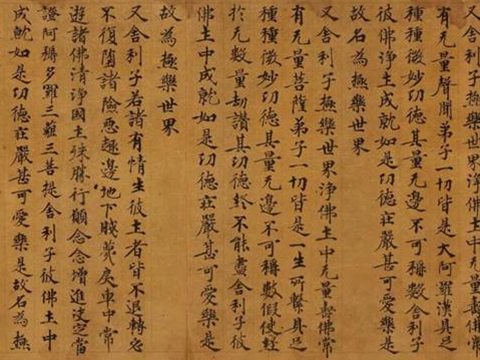 又舍利子極樂世界淨佛土中无量壽佛常
有无量聲聞弟子一切皆是大阿羅漢具足
種種微妙功德其量无邊不可稱數舍利子
彼佛淨土成就如是功德莊嚴甚可愛樂是
故名為極樂世界
又舍利子極樂世界淨佛土中无量壽佛常
有无量菩薩弟子一切皆是一生所繫具足
種種微妙功德其量无邊不可稱數假使經
於无數量劫讚其功德終不能盡舍利子彼
佛土中成就如是功德莊嚴甚可愛樂是
故為極樂世界
又舍利子若諸有情生彼土者皆不退轉必
不復墮諸險惡趣邊地下賤蔑戾車中常
遊諸佛清淨國土殊勝行願念念增進決定當
證阿耨多羅三藐三菩提舍利子彼佛土中
成就如是功德莊嚴甚可愛樂是故名為極